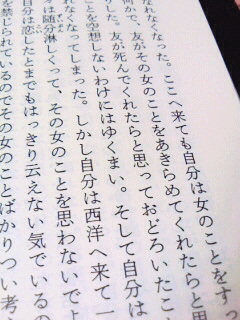 なれなくなった。ここへ来ても自分は女のことをすっ
何かで、友がその女のことをあきらめてくれたらと思
りした。友が死んでくれたらと思っておどろいたこ
ことを空想しないわけにはゆくまい。そして自分は
れなくなってしまった。しかし自分は西洋へ来て一
々は随分淋しくって、その女のことを思わないでよ
自分は恋したとまでもはっきり云えない気でいるの
を禁じられているのでその女のことばかりつい考